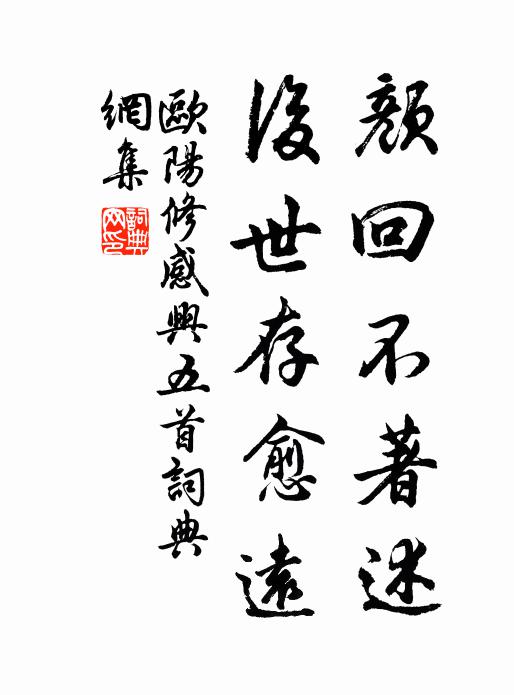 顏回不著述
後世存愈遠
歐陽修感興五首詞典
網集
詞典
网印